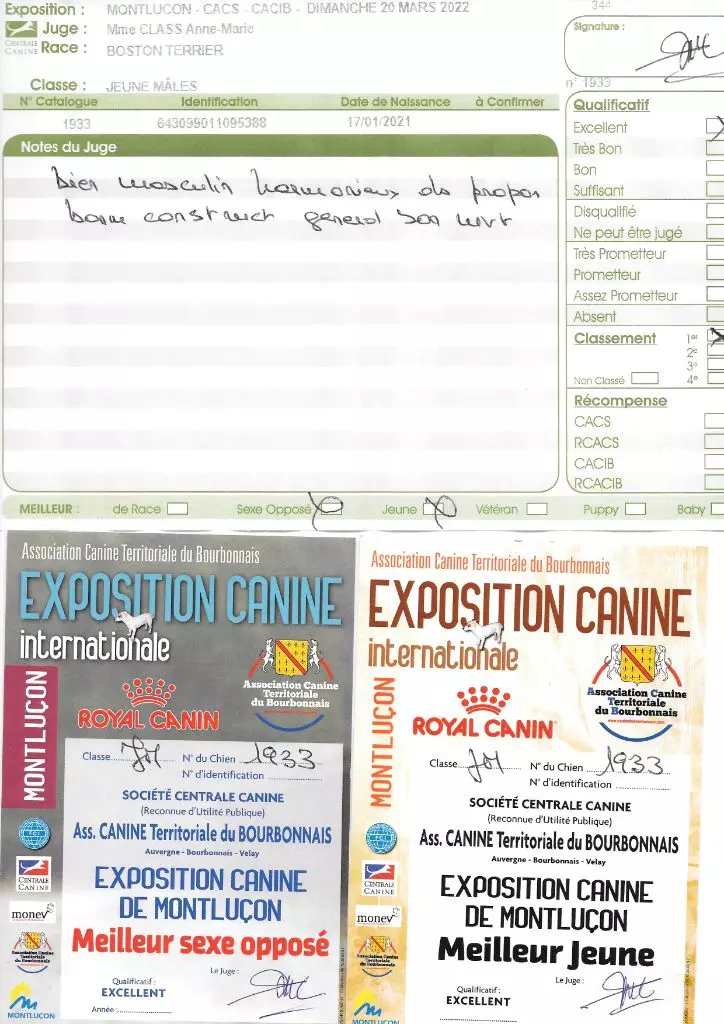 Exposition : MONTLUCON - CACS - CACIB - DIMANCHE 20 MARS 2022
344
Juge : Mme CLASS Anne-Marie
Signature :
CENTRALE CANINE
Race : BOSTON TERRIER
Classe : JEUNE MÂLES
n° 1933
N° Catalogue Identification Date de Naissance à Confirmer
1933 643099011095388 17/01/2021
Notes du Juge
bien masculin harmonieux ds propor
bonne construct general bon mvt
Qualificatif
Excellent
Très Bon
Bon
Suffisant
Disqualifié
Ne peut être jugé
Très Prometteur
Prometteur
Assez Prometteur
Absent
Classement 1er
2e
3e
Non Classé 4e
Récompense
CACS
RCACS
CACIB
RCACIB
MEILLEUR : de Race Sexe Opposé Jeune Vétéran Puppy Baby
Association Canine Territoriale du Bourbonnais
EXPOSITION CANINE
internationale
Association Canine
Territoriale
du Bourbonnais
ROYAL CANIN
MONTLUÇON
Classe JM N° du Chien 1933
N° d'identification
SOCIÉTÉ CENTRALE CANINE
(Reconnue d'Utilité Publique)
Ass. CANINE Territoriale du BOURBONNAIS
Auvergne - Bourbonnais - Velay
FCI
CENTRALE
CANINE
EXPOSITION CANINE
DE MONTLUÇON
Meilleur sexe opposé
Qualificatif :
EXCELLENT
Le Juge :
Année :
MONTLUÇON
Association Canine Territoriale du Bourbonnais
EXPOSITION CANINE
internationale
Association Canine
Territoriale
du Bourbonnais
ROYAL CANIN
MONTLUÇON
Classe JM N° du Chien 1933
N° d'identification
SOCIÉTÉ CENTRALE CANINE
(Reconnue d'Utilité Publique)
Ass. CANINE Territoriale du BOURBONNAIS
Auvergne - Bourbonnais - Velay
FCI
CENTRALE
CANINE
EXPOSITION CANINE
DE MONTLUÇON
Meilleur Jeune
Qualificatif :
EXCELLENT
Le Juge :
MONTLUÇON